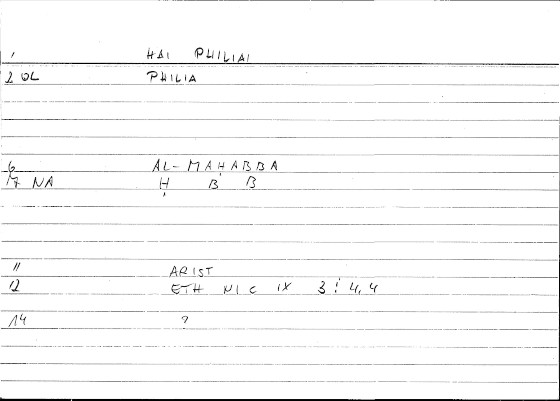 1 HAI PHILIAI
2 OL PHILIA
6 AL-MAḤABBA
17 NA Ḥ B B
11 ARIST
12 ETH NIC IX 3! 4,4
14 ?